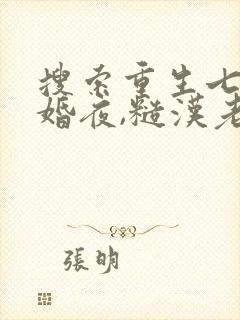 搜索重生七
婚夜,糙漢老
張明